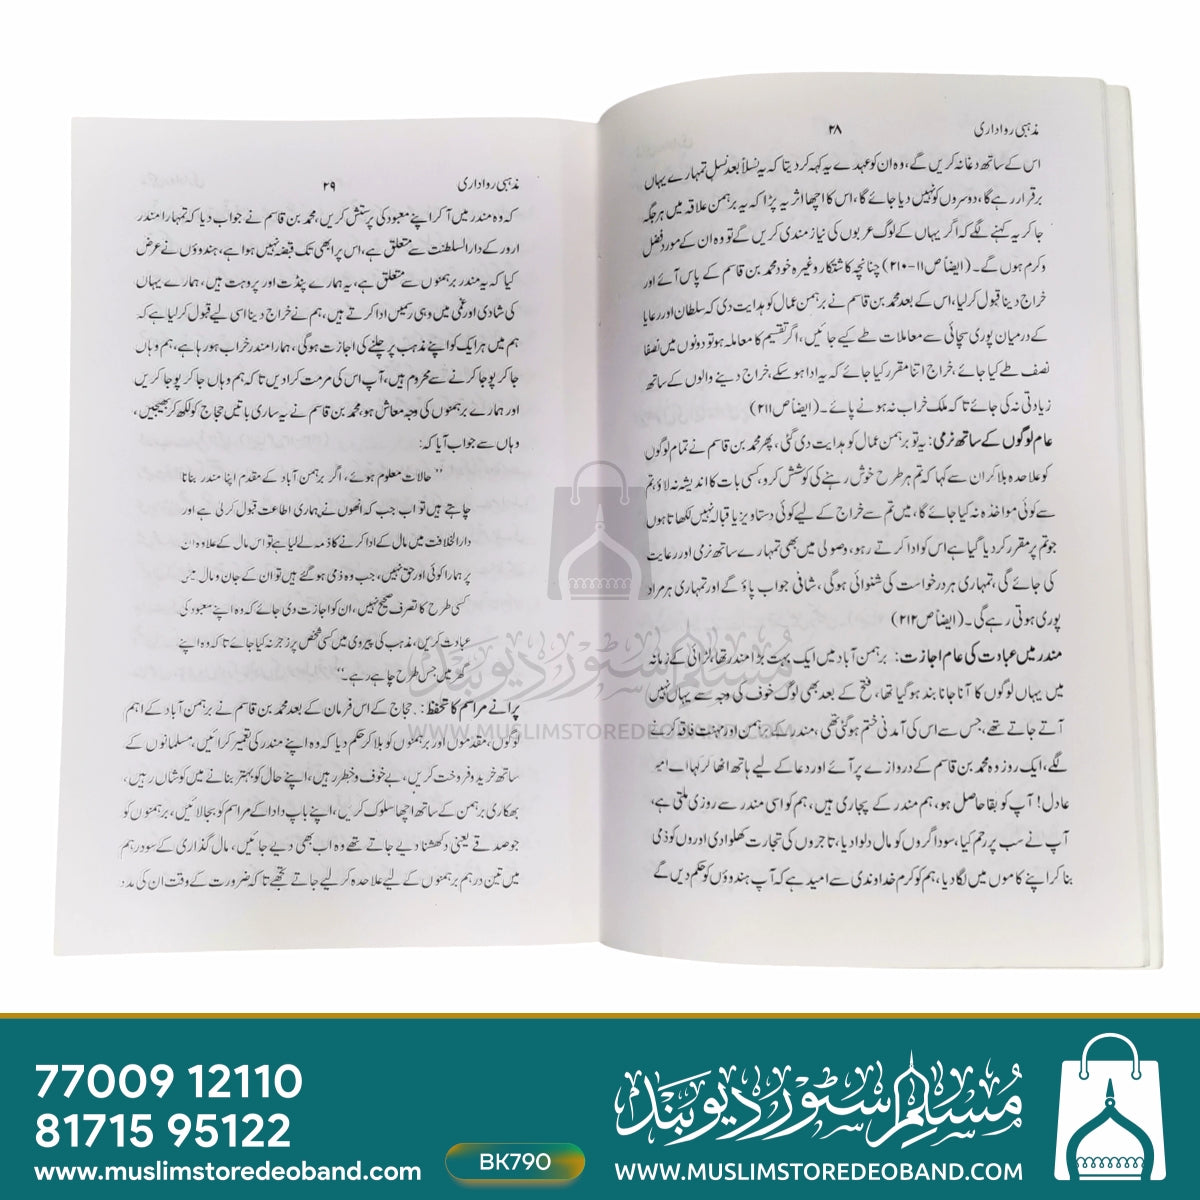 مذہبی رواداری ۲۸
اس کے ساتھ دغا نہ کریں گے، وہ ان کو عہدے یہ کہہ کر دیتا کہ یہ نسلاً بعد نسلٍ تمہارے یہاں
برقرار رہے گا، دوسروں کو نہیں دیا جائے گا، اس کا اچھا اثر یہ پڑا کہ یہ برہمن علاقہ میں ہر جگہ
جا کر یہ کہنے لگے کہ اگر یہاں کے لوگ عربوں کی نیاز مندی کریں گے تو وہ ان کے مورد فضل
و کرم ہوں گے۔ (ایضاً ص ۱۱-۲۱۰) چنانچہ کاشتکار وغیرہ خود محمد بن قاسم کے پاس آئے اور
خراج دینا قبول کر لیا، اس کے بعد محمد بن قاسم نے برہمن عمال کو ہدایت دی کہ سلطان اور رعایا
کے درمیان پوری سچائی سے معاملات طے کیے جائیں، اگر تقسیم کا معاملہ ہو تو دونوں میں نصفا
نصف طے کیا جائے، خراج اتنا مقرر کیا جائے کہ یہ ادا ہو سکے، خراج دینے والوں کے ساتھ
زیادتی نہ کی جائے تا کہ ملک خراب نہ ہونے پائے۔ (ایضاً ص ۲۱۱)
عام لوگوں کے ساتھ نرمی: یہ تو برہمن عمال کو ہدایت دی گئی، پھر محمد بن قاسم نے تمام لوگوں
کو علاحدہ بلا کر ان سے کہا کہ تم ہر طرح خوش رہنے کی کوشش کرو، کسی بات کا اندیشہ نہ لاؤ، تم
سے کوئی مواخذہ نہ کیا جائے گا، میں تم سے خراج کے لیے کوئی دستاویز یا قبالہ نہیں لکھاتا ہوں
جو تم پر مقرر کر دیا گیا ہے اس کو ادا کرتے رہو، وصولی میں بھی تمہارے ساتھ نرمی اور رعایت
کی جائے گی، تمہاری ہر درخواست کی شنوائی ہوگی، شافی جواب پاؤ گے اور تمہاری ہر مراد
پوری ہوتی رہے گی۔ (ایضاً ص ۲۱۲)
مندر میں عبادت کی عام اجازت: برہمن آباد میں ایک بہت بڑا مندر تھا، لڑائی کے زمانہ
میں یہاں لوگوں کا آنا جانا بند ہو گیا تھا، فتح کے بعد بھی لوگ خوف کی وجہ سے یہاں نہیں
آتے جاتے تھے، جس سے اس کی آمدنی ختم ہو گئی تھی، مندر کے برہمن اور مہنت فاقہ کرنے
لگے، ایک روز وہ محمد بن قاسم کے دروازے پر آئے اور دعا کے لیے ہاتھ اٹھا کر کہا اے امیر
عادل! آپ کو بقا حاصل ہو، ہم مندر کے پجاری ہیں، ہم کو اسی مندر سے روزی ملتی ہے،
آپ نے سب پر رحم کیا، سوداگروں کو مال دلوا دیا، تاجروں کی تجارت کھلوا دی اوروں کو ذمی
بنا کر اپنے کاموں میں لگا دیا، ہم کو کرم خداوندی سے امید ہے کہ آپ ہندوؤں کو حکم دیں گے
مذہبی رواداری ۲۹
کہ وہ مندر میں آ کر اپنے معبود کی پرستش کریں، محمد بن قاسم نے جواب دیا کہ تمہارا مندر
ارور کے دار السلطنت سے متعلق ہے، اس پر ابھی تک قبضہ نہیں ہوا ہے، ہندوؤں نے عرض
کیا کہ یہ مندر برہمنوں سے متعلق ہے، یہ ہمارے پنڈت اور پروہت ہیں، ہمارے یہاں
کی شادی اور غمی میں وہی رسمیں ادا کرتے ہیں، ہم نے خراج دینا اسی لیے قبول کر لیا ہے کہ
ہم میں ہر ایک کو اپنے مذہب پر چلنے کی اجازت ہوگی، ہمارا مندر خراب ہو رہا ہے، ہم وہاں
جا کر پوجا کرنے سے محروم ہیں، آپ اس کی مرمت کرا دیں تا کہ ہم وہاں جا کر پوجا کریں
اور ہمارے برہمنوں کی وجہ معاش ہو، محمد بن قاسم نے یہ ساری باتیں حجاج کو لکھ کر بھیجیں،
وہاں سے جواب آیا کہ:
”حالات معلوم ہوئے، اگر برہمن آباد کے مقدم اپنا مندر بنانا
چاہتے ہیں تو اب جب کہ انھوں نے ہماری اطاعت قبول کر لی ہے اور
دارالخلافت میں مال کے ادا کرنے کا ذمہ لے لیا ہے تو اس مال کے علاوہ ان
پر ہمارا کوئی اور حق نہیں، جب وہ ذمی ہو گئے ہیں تو ان کے جان و مال میں
کسی طرح کا تصرف صحیح نہیں، ان کو اجازت دی جائے کہ وہ اپنے معبود کی
عبادت کریں، مذہب کی پیروی میں کسی شخص پر زجر نہ کیا جائے تا کہ وہ اپنے
گھر میں جس طرح چاہے رہے۔“
پرانے مراسم کا تحفظ: حجاج کے اس فرمان کے بعد محمد بن قاسم نے برہمن آباد کے اہم
لوگوں، مقدموں اور برہمنوں کو بلا کر حکم دیا کہ وہ اپنے مندر کی تعمیر کرائیں، مسلمانوں کے
ساتھ خرید و فروخت کریں، بے خوف و خطر رہیں، اپنے حال کو بہتر بنانے میں کوشاں رہیں،
بھکاری برہمن کے ساتھ اچھا سلوک کریں، اپنے باپ دادا کے مراسم کو بجا لائیں، برہمنوں کو
جو صدقے یعنی دکھشنا دیے جاتے تھے وہ اب بھی دیے جائیں، مال گذاری کے سو درہم
میں تین درہم برہمنوں کے لیے علاحدہ کر لیے جاتے تھے تا کہ ضرورت کے وقت ان کی مدد
مسلم سٹور دیوبند
WWW.MUSLIMSTOREDEOBAND.COM
77009 12110
81715 95122
www.muslimstoredeoband.com
BK790
مسلم سٹور دیوبند
WWW.MUSLIMSTOREDEOBAND.COM